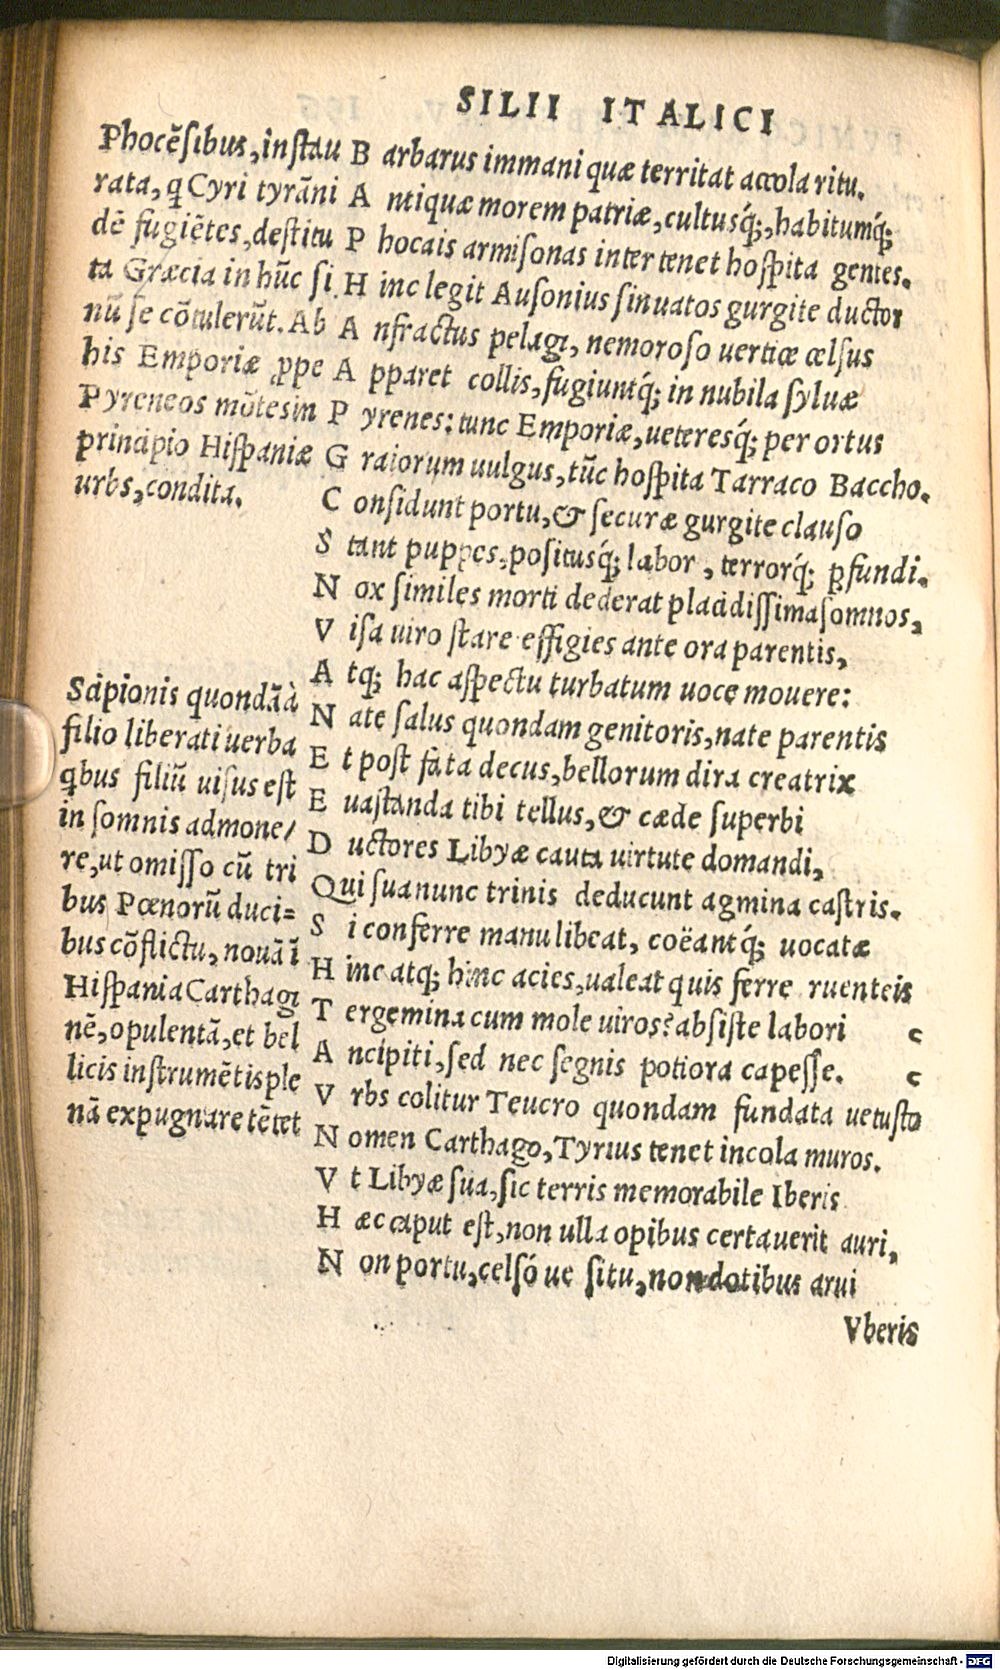 SILII ITALICI
Phocẽsibus, instau
rata, q Cyri tyrãni
dẽ fugiẽtes, destitu
ta Græcia in hũc si
nũ se cõtulerũt. Ab
his Emporiæ ꝓpe
Pyreneos mõtes in
principio Hispaniæ
urbs, condita.
Scipionis quondã à
filio liberati uerba
qbus filiũ uisus est
in somnis admone/
re, ut omisso cũ tri
bus Pœnorũ duci=
bus cõflictu, nouã ĩ
Hispania Carthagi
nẽ, opulentã, et bel
licis instrumẽtis ple
nã expugnare tẽtet
B arbarus immani quæ territat accola ritu.
A ntiquæ morem patriæ, cultusq́;, habitumq́;
P hocais armisonas inter tenet hospita gentes.
H inc legit Ausonius sinuatos gurgite ductor
A nfractus pelagi, nemoroso uertice celsus
A pparet collis, fugiuntq́; in nubila syluæ
P yrenes: tunc Emporiæ, ueteresq́; per ortus
G raiorum uulgus, tũc hospita Tarraco Baccho.
C onsidunt portu, & securæ gurgite clauso
S tant puppes, positusq́; labor, terrorq́; ꝓfundi.
N ox similes morti dederat placidissima somnos,
V isa uiro stare effigies ante ora parentis,
A tq; hac aspectu turbatum uoce mouere:
N ate salus quondam genitoris, nate parentis
E t post fata decus, bellorum dira creatrix
E uastanda tibi tellus, & cæde superbi
D uctores Libyæ cauta uirtute domandi,
Qui sua nunc trinis deducunt agmina castris.
S i conferre manu libeat, coëantq́; uocatæ
H inc atq; hinc acies, ualeat quis ferre ruenteis
T ergemina cum mole uiros? absiste labori c
A ncipiti, sed nec segnis potiora capesse. c
V rbs colitur Teucro quondam fundata uetusto
N omen Carthago, Tyrius tenet incola muros.
V t Libyæ sua, sic terris memorabile Iberis
H æc caput est, non ulla opibus certauerit auri,
N on portu, celsó ue situ, non dotibus arui
Vberis
Digitalisierung gefördert durch die Deutsche Forschungsgemeinschaft - DFG